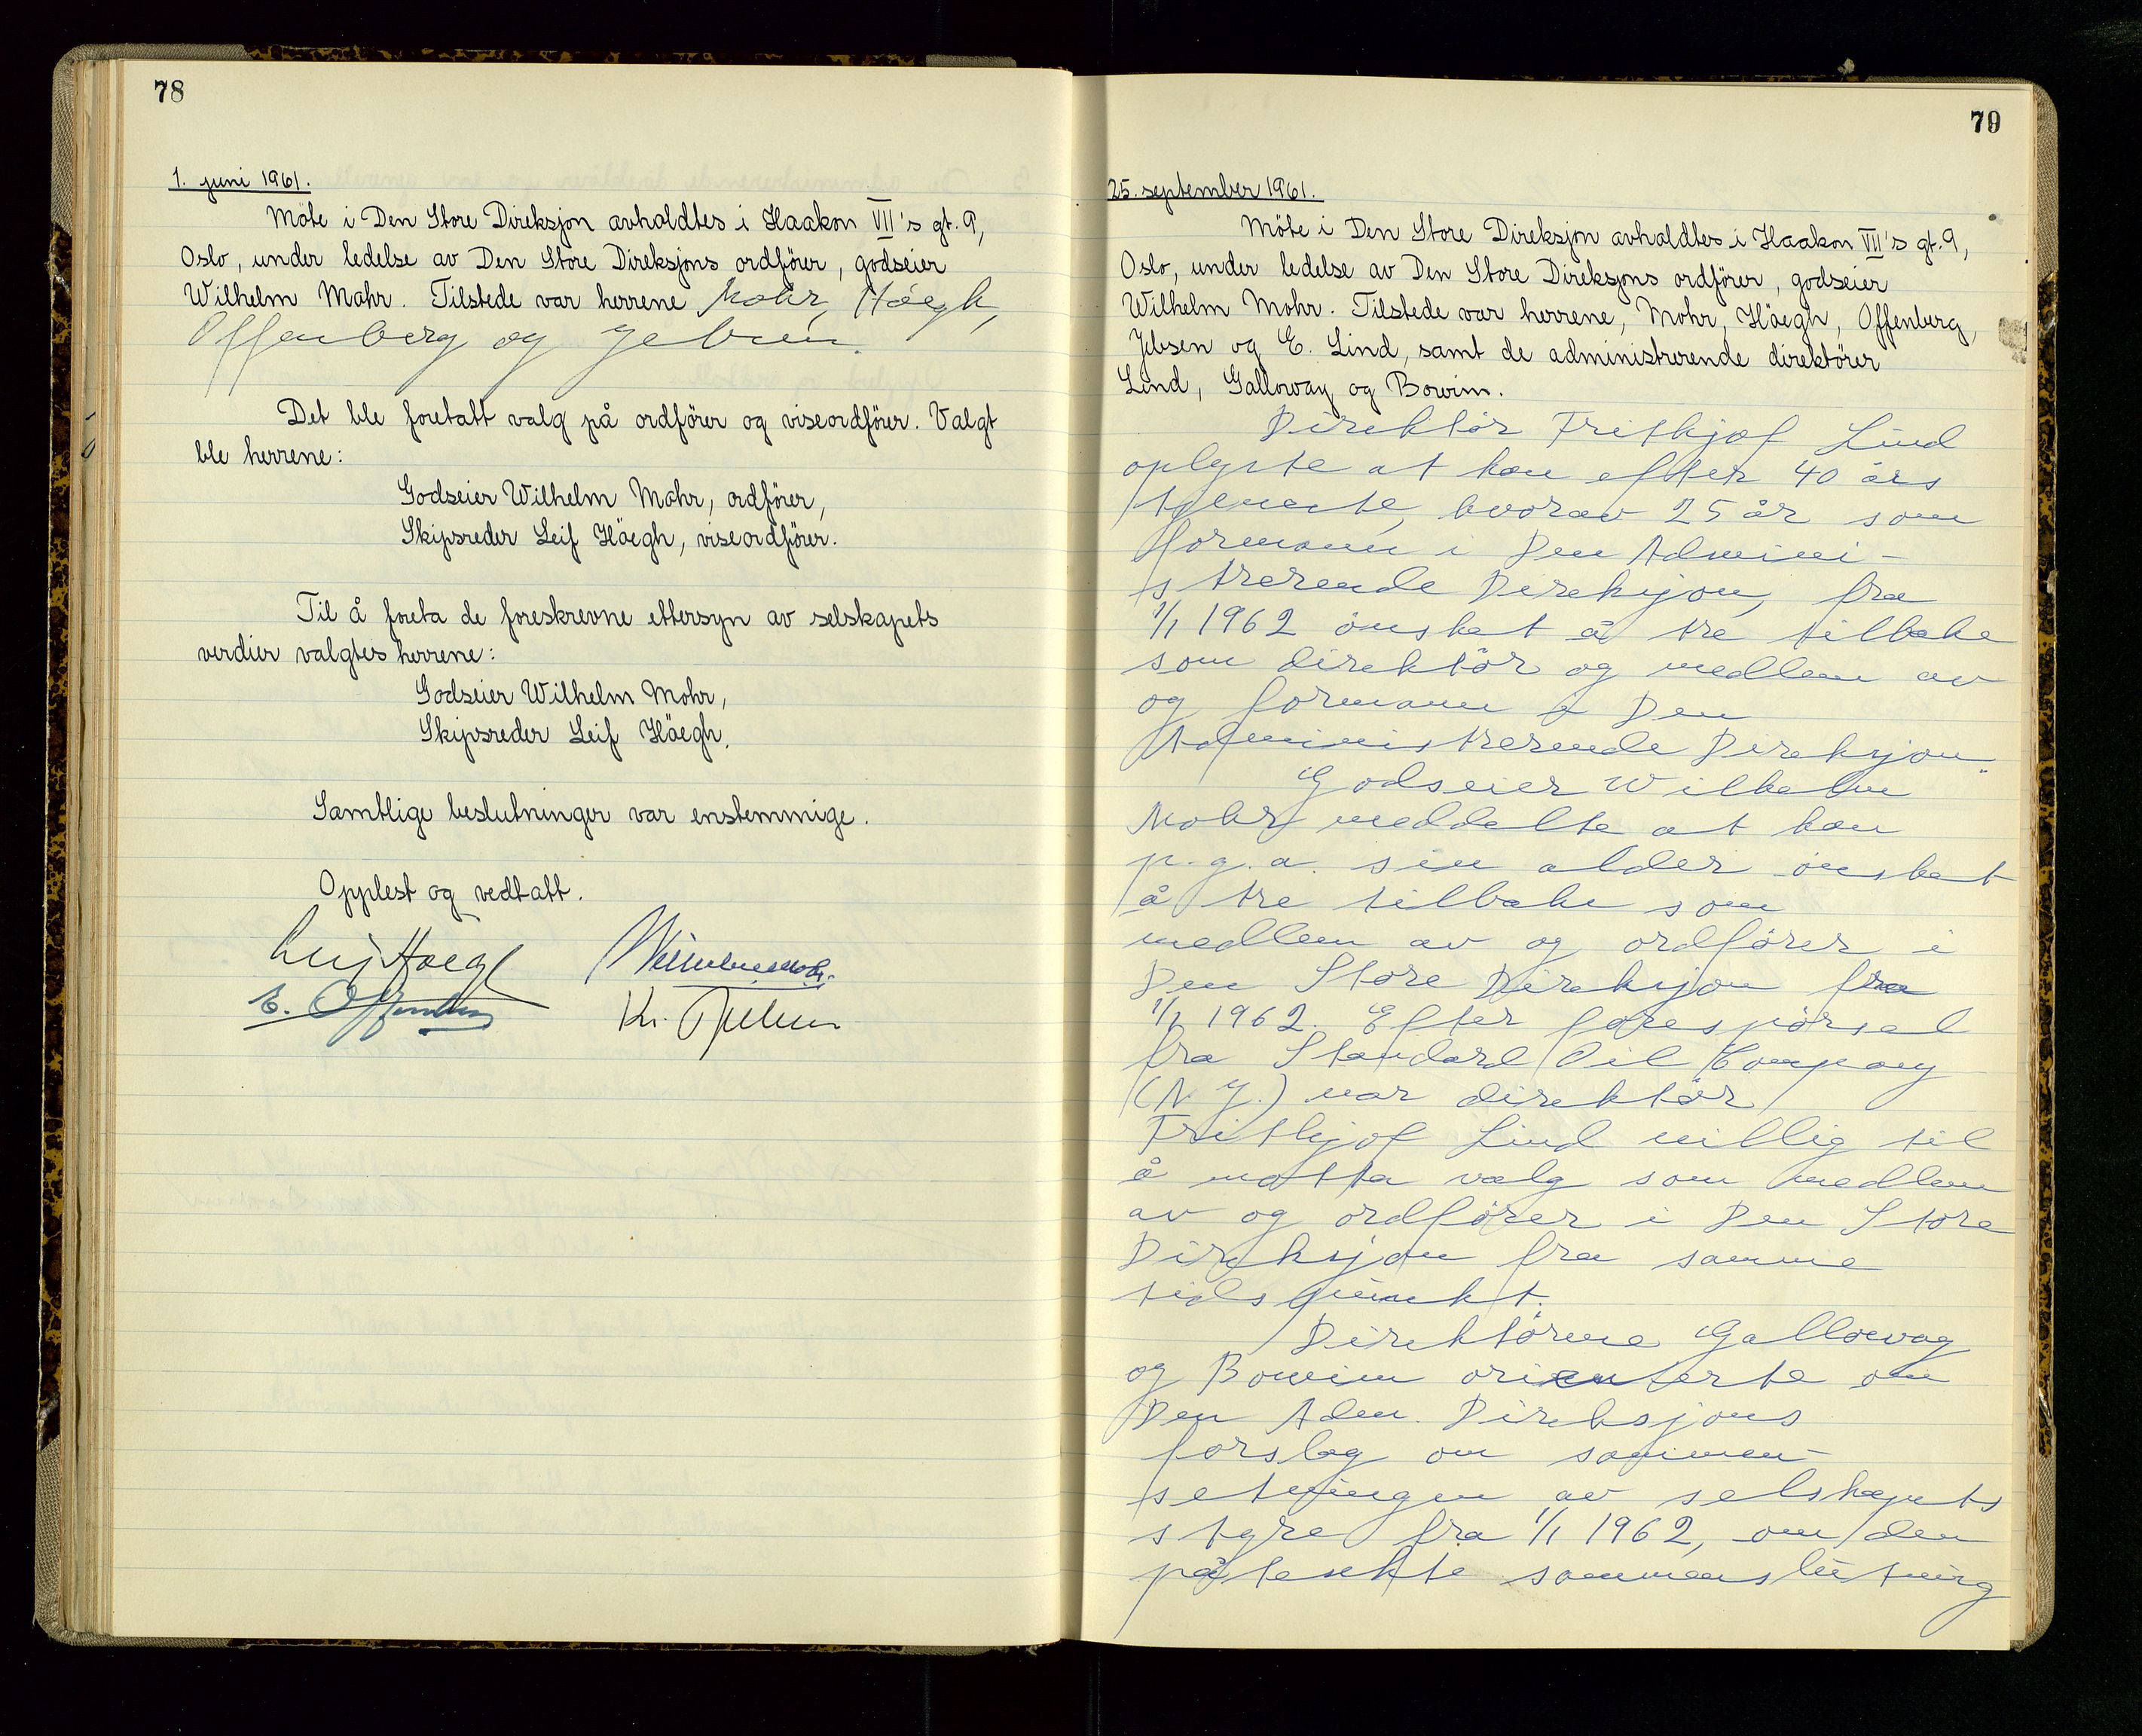 78
1. juni 1961.
Möte i Den Store Direksjon avholdtes i Haakon VII's gt. 9,
Oslo, under ledelse av Den Store Direksjons ordförer, godseier
Wilhelm Mohr. Tilstede var herrene Mohr, Höegh,
Offenberg og Jebsen.
Det ble foretatt valg på ordförer og viseordförer. Valgt
ble herrene:
Godseier Wilhelm Mohr, ordförer,
Skipsreder Leif Höegh, viseordförer.
Til å foreta de foreskrevne ettersyn av selskapets
verdier valgtes herrene:
Godseier Wilhelm Mohr,
Skipsreder Leif Höegh.
Samtlige beslutninger var enstemmige.
Opplest og vedtatt.
Leif Höegh
Wilhelm Mohr
E. Offenberg
Kr. Jebsen
79
25. september 1961.
Möte i Den Store Direksjon avholdtes i Haakon VII's gt. 9,
Oslo, under ledelse av Den Store Direksjons ordförer, godseier
Wilhelm Mohr. Tilstede var herrene, Mohr, Höegh, Offenberg,
Jebsen og E. Lind, samt de administrerende direktörer
Lind, Galloway og Bowim.
Direktör Frithjof Lind
oplyste at han efter 40 års
tjeneste, hvorav 25 år som
formann i Den Admini-
strerende Direksjon, fra
1/1 1962 önsket å tre tilbake
som direktör og medlem av
og formann i Den
Administrerende Direksjon.
Godseier Wilhelm
Mohr meddelte at han
p.g.a. sin alder önsket
å tre tilbake som
medlem av og ordförer i
Den Store Direksjon fra
1/1 1962. Efter forespörsel
fra Standard Oil Company
(N.J.) var direktör
Frithjof Lind villig til
å motta valg som medlem
av og ordförer i Den Store
Direksjon fra samme
tidspunkt.
Direktörene Galloway
og Bowim orienterte om
Den Adm. Direksjons
forslag om sammen-
setningen av selskapets
styre fra 1/1 1962, om den
påtenkte sammenslutning